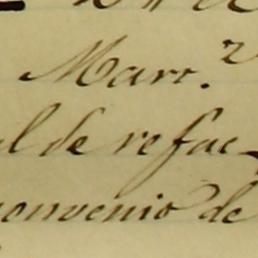 Marc.z
al de refac
convenio de